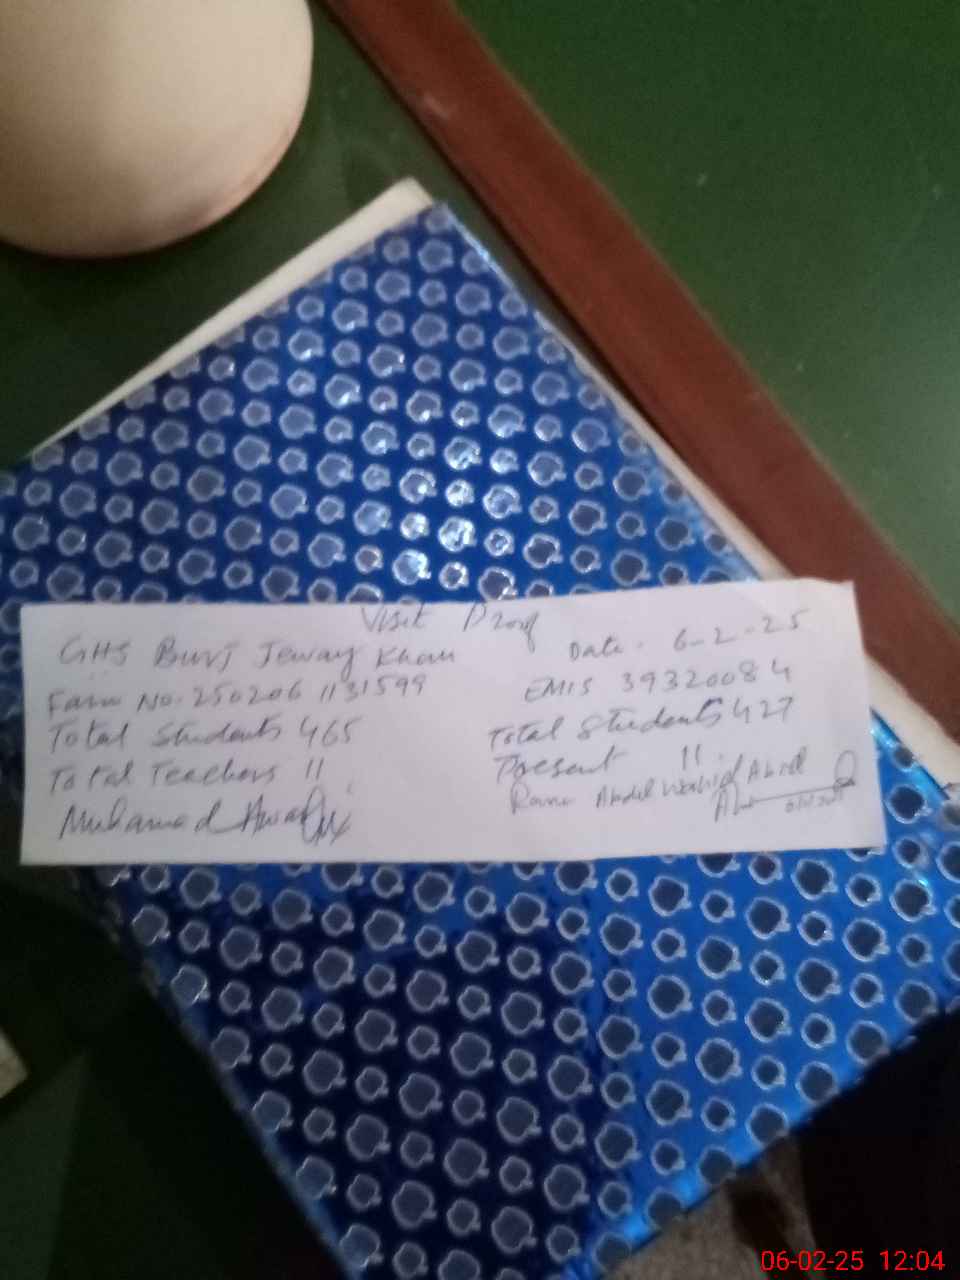 Visit Proof
GHS Burj Jeway Khan Date. 6-2-25
Farm No. 250206 1131599 EMIS 39320084
Total Students 465 Total Students 427
Total Teachers 11 Present 11
Muhamad Abdul Wahid Abid
06-02-25 12:04